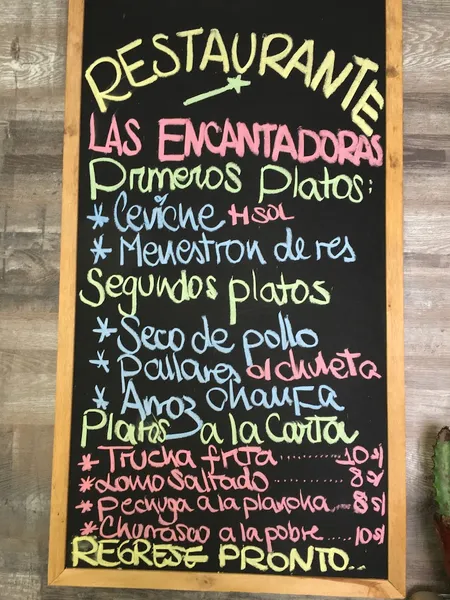 RESTAURANTE
LAS ENCANTADORAS
Primeros Platos:
* Ceviche +1 SOL
* Menestron de res
Segundos platos
* Seco de pollo
* Pallares c/ chuleta
* Arroz chaufa
Platos a la Carta
* Trucha frita ......... 10 s/
* Lomo Saltado ......... 8 s/
* Pechuga a la plancha .. 8 s/
* Churrasco a lo pobre .. 10 s/
REGRESE PRONTO..